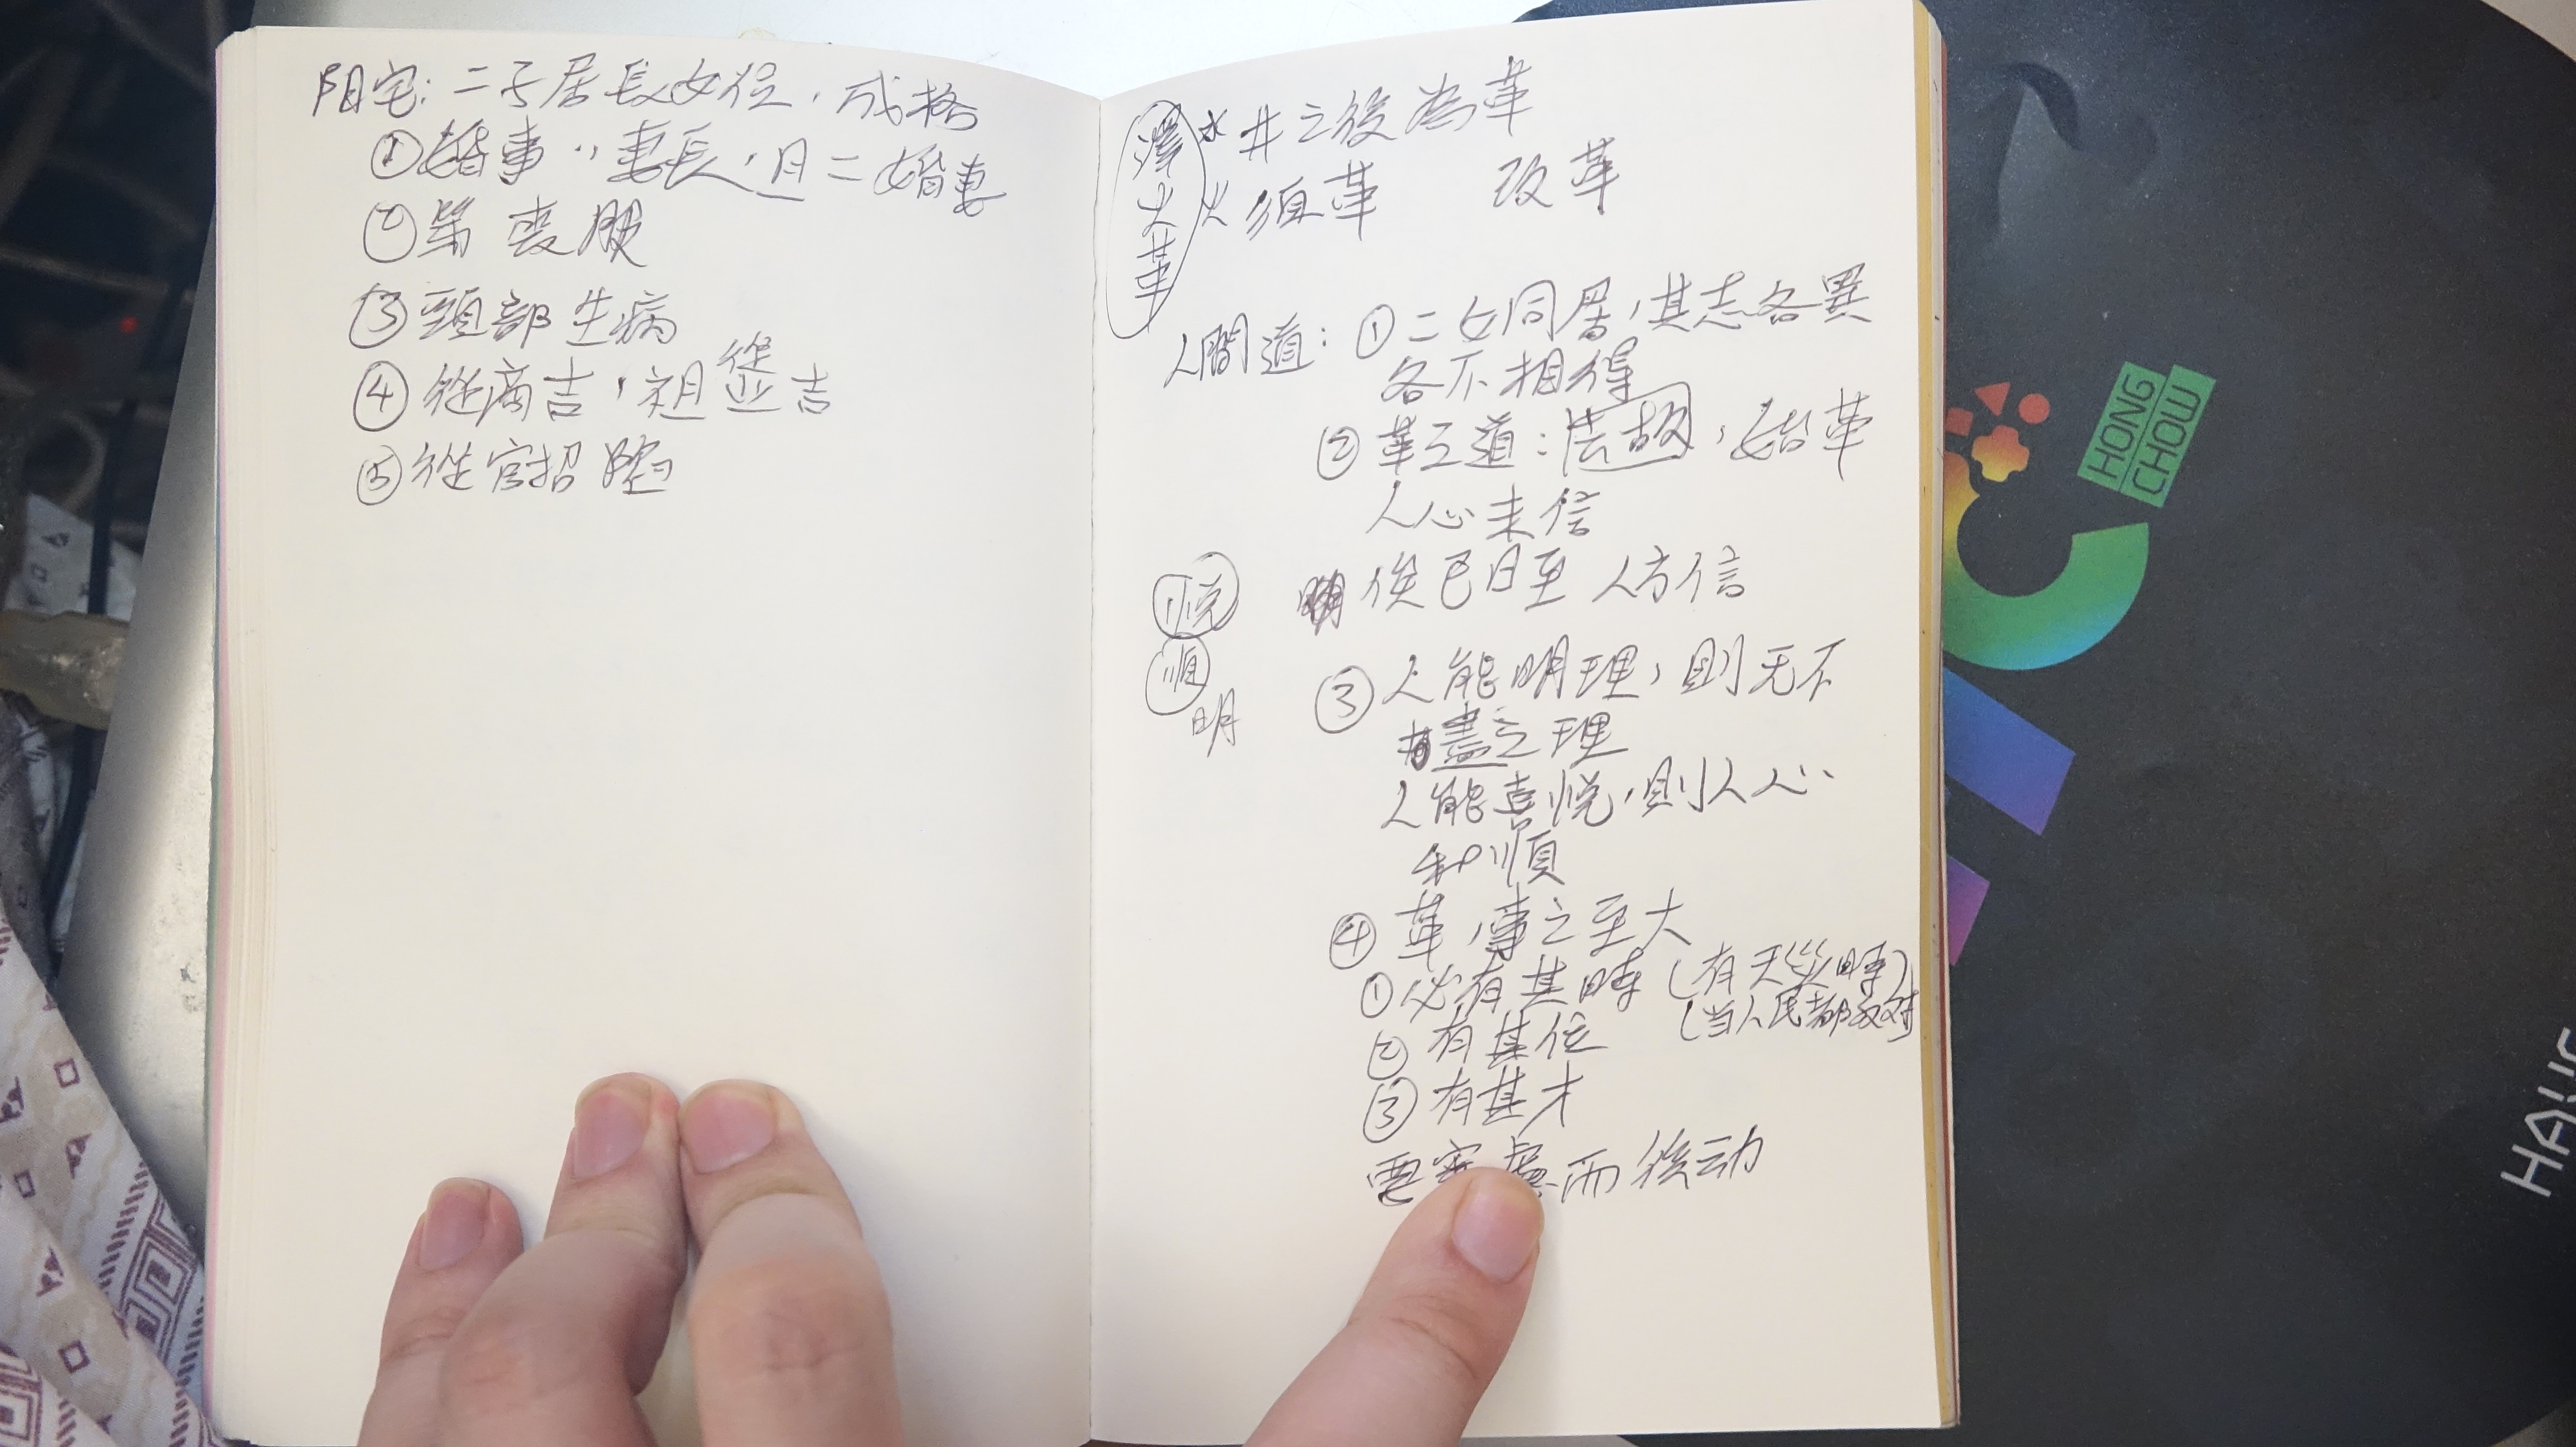 阳宅：二子居長女位，成格
①婚事：妻長，月二婚妻
② 喪服
③頭部生病
④從商吉，祖業吉
⑤從官招
澤火革
水井之後為革
火 須革 改革
人間道：①二女同居，其志各異
各不相得
②革之道：去故，始革
人心未信
俟已日至 人方信
悦
順
明
③人能明理，則无不
盡之理
人能喜悦，則人心
和順
④革，事之至大
①必有其時（有天災時）
（当人民都反対）
②有其位
③有其才
要 慮而後动
HONG
CHOW